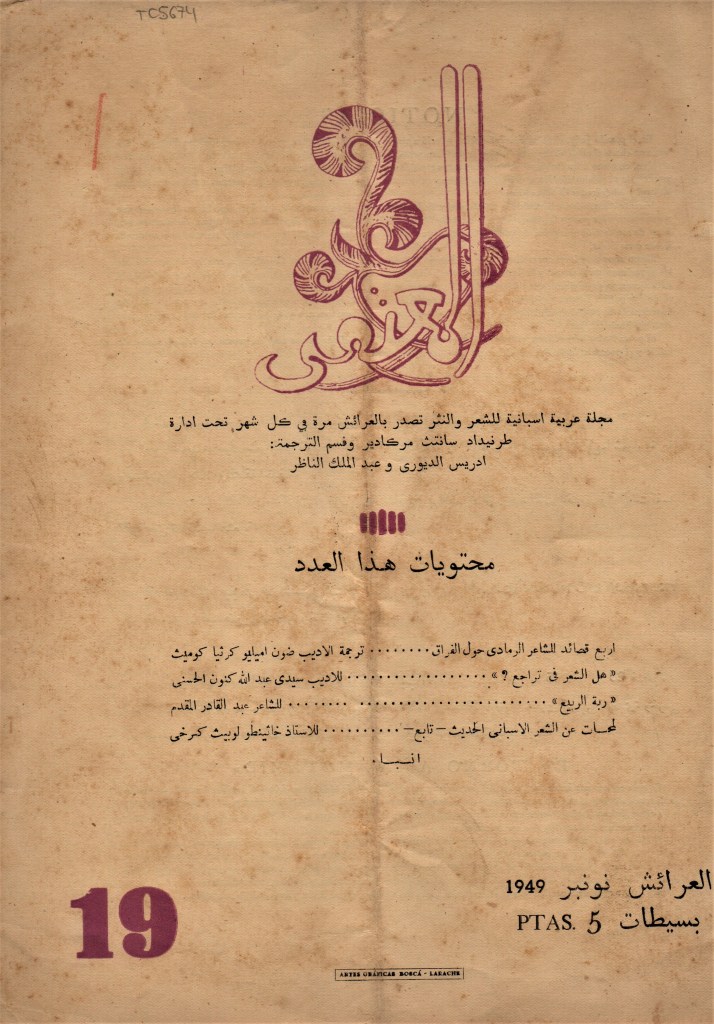 TC5674
المعتمد
مجلة عربية اسبانية للشعر والنثر تصدر بالعرائش مرة في كل شهر، تحت ادارة
طرنيداد سانتث مركادير وقسم الترجمة:
ادريس الديورى و عبد الملك الناظر
محتويات هذا العدد
اربع قصائد للشاعر الرمادى حول الفراق ........ ترجمة الاديب ضون اميليو كرثيا كوميث
« هل الشعر في تراجع ؟ » ................. للاديب سيدى عبد الله كنون الحسنى
« ربة الربيع » ............................... للشاعر عبد القادر المقدم
لمحات عن الشعر الاسبانى الحديث — تابع — .......... للاستاذ خاثينطو لوبيث كرخى
انباء.
العرائش نونبر 1949
بسيطات 5 PTAS.
19
ARTES GRÁFICAS BOSCÁ - LARACHE